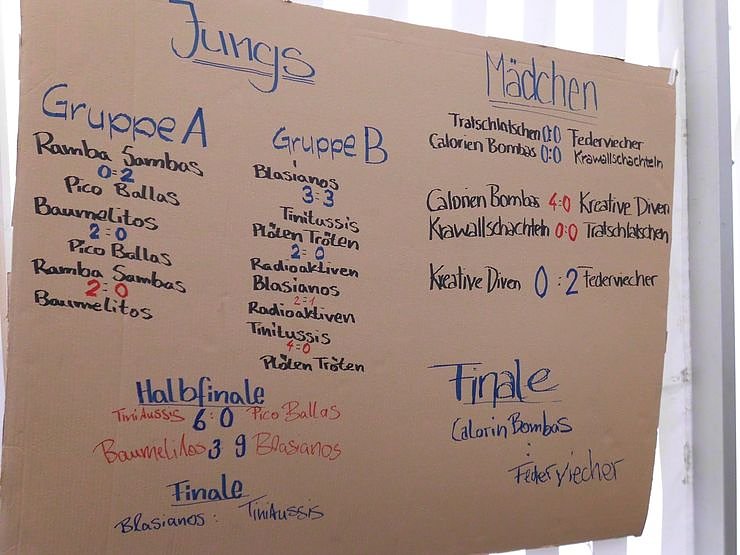 Jungs
Gruppe A
Ramba Sambas
0:2
Pico Ballas
Baumelitos
2:0
Pico Ballas
Ramba Sambas
2:0
Baumelitos
Gruppe B
Blasianos
3:3
Tinitussis
Plöten Tröten
2:0
Radioaktiven
Blasianos
2=1
Radioaktiven
Tinitussis
4=0
Plöten Tröten
Halbfinale
Tinitussis 6:0 Pico Ballas
Baumelitos 3 9 Blasianos
Finale
Blasianos : Tinitussis
Mädchen
Tratschlatschen 0:0 Federviecher
Calorien Bombas 0:0 Krawallschachteln
Calorien Bombas 4:0 Kreative Diven
Krawallschachteln 0:0 Tratschlatschen
Kreative Diven 0:2 Federviecher
Finale
Calorin Bombas
:
Federviecher